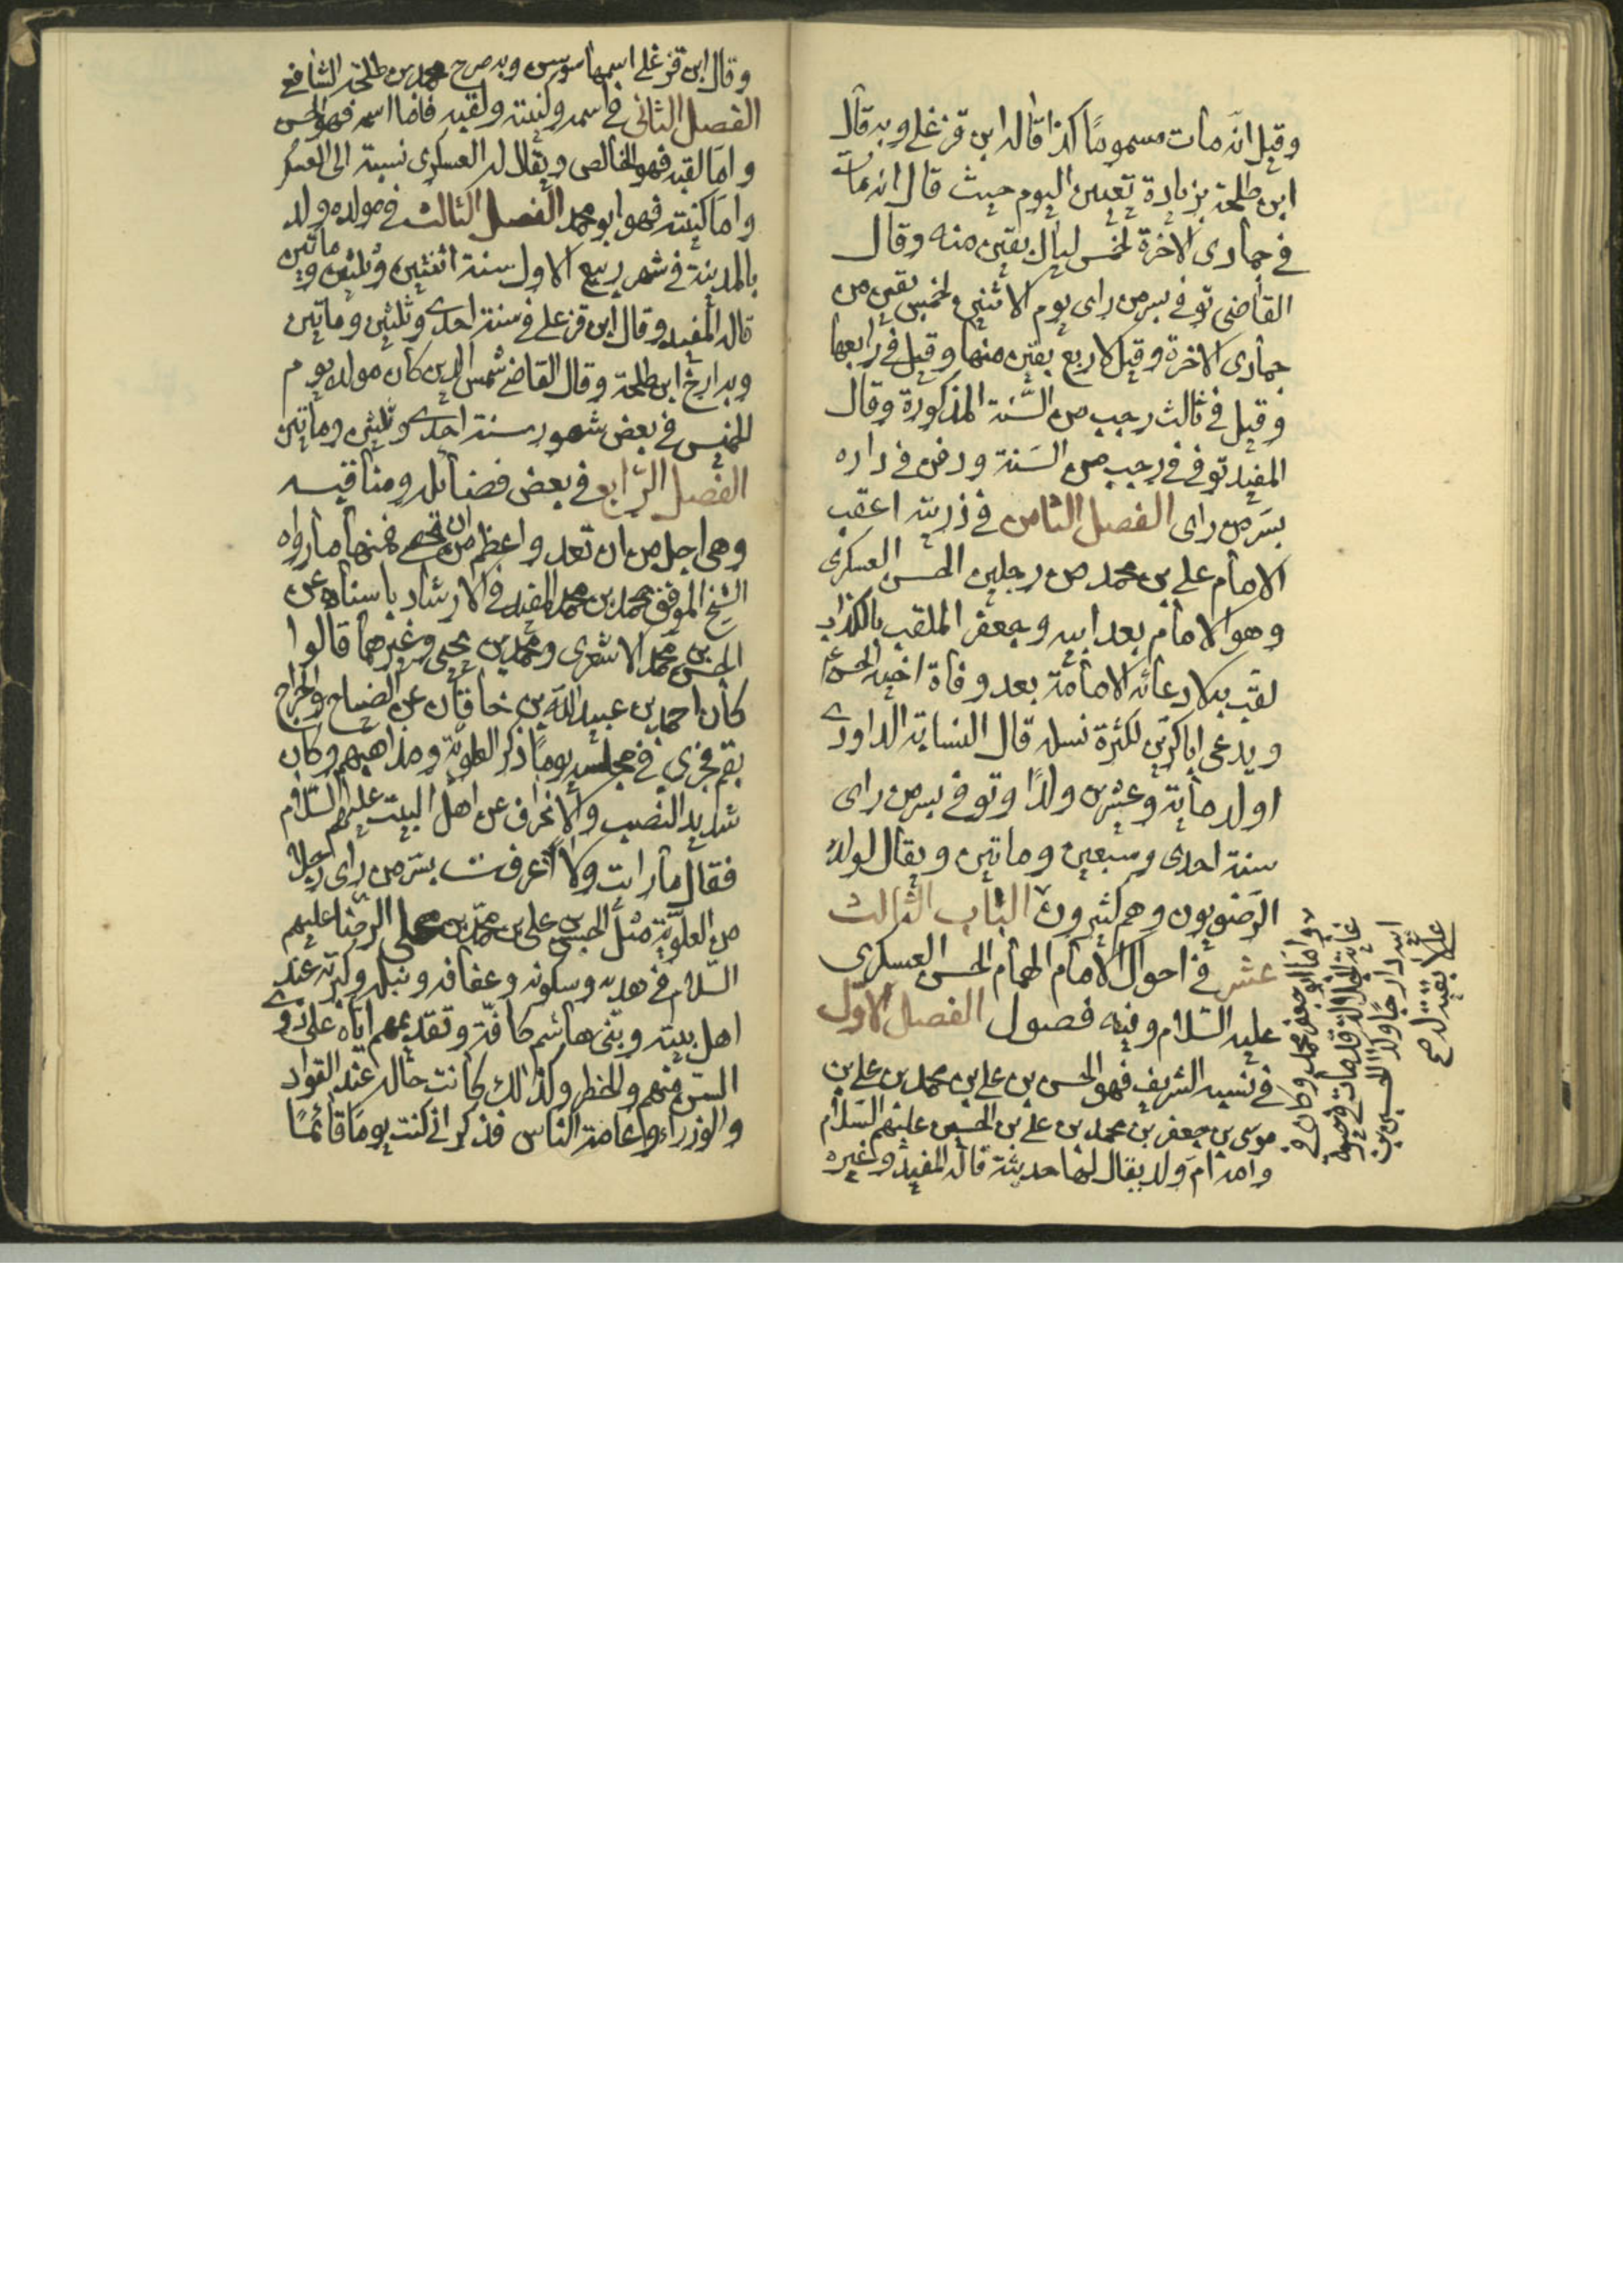 وقيل انه مات مسموما كذا قاله ابن قزغلي وبه قال
ابن طلحة بزيادة تعيين اليوم حيث قال انه مات
في جمادى الاخرة لخمس ليال بقين منه وقال
القاضي توفي بسر من راى يوم الاثنين لخمس بقين من
جمادى الاخرة وقيل لاربع بقين منها وقيل في رابعها
وقيل في ثالث رجب من السنة المذكورة وقال
المفيد توفي في رجب من السنة ودفن في داره
بسر من راى الفصل الثامن في ذريته اعقب
الامام علي بن محمد من رجلين الحسن العسكرى
وهو الامام بعد ابيه وجعفر الملقب بالكذاب
لقب به لادعائه الامامة بعد وفاة اخيه الحسن ع
ويدعى اباكرين لكثرة نسله قال النسابة الداودي
اولد ماية وعشرين ولدًا وتوفي بسر من راى
سنة احدى وسبعين وماتين ويقال لولده
الرضويون وهم كثيرون الباب الثالث
عشر في احوال الامام الهمام الحسن العسكرى
عليه السلام وفيه فصول الفصل الاول
في نسبه الشريف فهو الحسن بن علي بن محمد بن علي بن
موسى بن جعفر بن محمد بن علي بن الحسين عليهم السلام
وامه ام ولد يقال لها حديثة قاله المفيد وغيره
واما ابو جعفر محمد وكان في
غاية الجلالة قد مات في حيوة
ابيه دارجًا وكذا الحسين بن
علي لا بقية له صح
وقال ابن قزغلي اسمها سوسن وبه صرح محمد بن طلحة الشافعي
الفصل الثاني في اسمه وكنيته ولقبه فاما اسمه فهو الحسن
واما لقبه فهو الخالص ويقال له العسكرى نسبة الى العسكر
واما كنيته فهو ابو محمد الفصل الثالث في مولده ولد
بالمدينة في شهر ربيع الاول سنة اثنتين وثلثين وماتين
قاله المفيد وقال ابن قزغلي في سنة احدي وثلثين وماتين
وبه ارخ ابن طلحة وقال القاضي شمس الدين كان مولده يوم
الخميس في بعض شهور سنة احدي وثلثين وماتين
الفصل الرابع في بعض فضائله ومناقبه
وهي اجل من ان تعد واعظم من ان تحصى فمنها ما رواه
الشيخ الموفق محمد بن محمد المفيد في الارشاد باسناده عن
الحسن بن محمد الاشعرى ومحمد بن يحيى وغيرهما قالوا
كان احمد بن عبيد الله بن خاقان على الضياع والخراج
بقم فجرى في مجلسه يومًا ذكر العلوية ومذاهبهم وكان
شديد النصب والانحراف عن اهل البيت عليهم السلام
فقال ما رايت ولا اعرفت بسر من راى رجلا
من العلوية مثل الحسن بن علي بن محمد بن علي الرضا عليهم
السلام في هديه وسكونه وعفافه ونبله وكبرته عند
اهل بيته وبني هاشم كافة وتقديمهم اياه على ذوي
السن منهم والخطر وكذالك كانت حاله عند القواد
والوزراء وعامة الناس فذكر اني كنت يومًا قائمًا